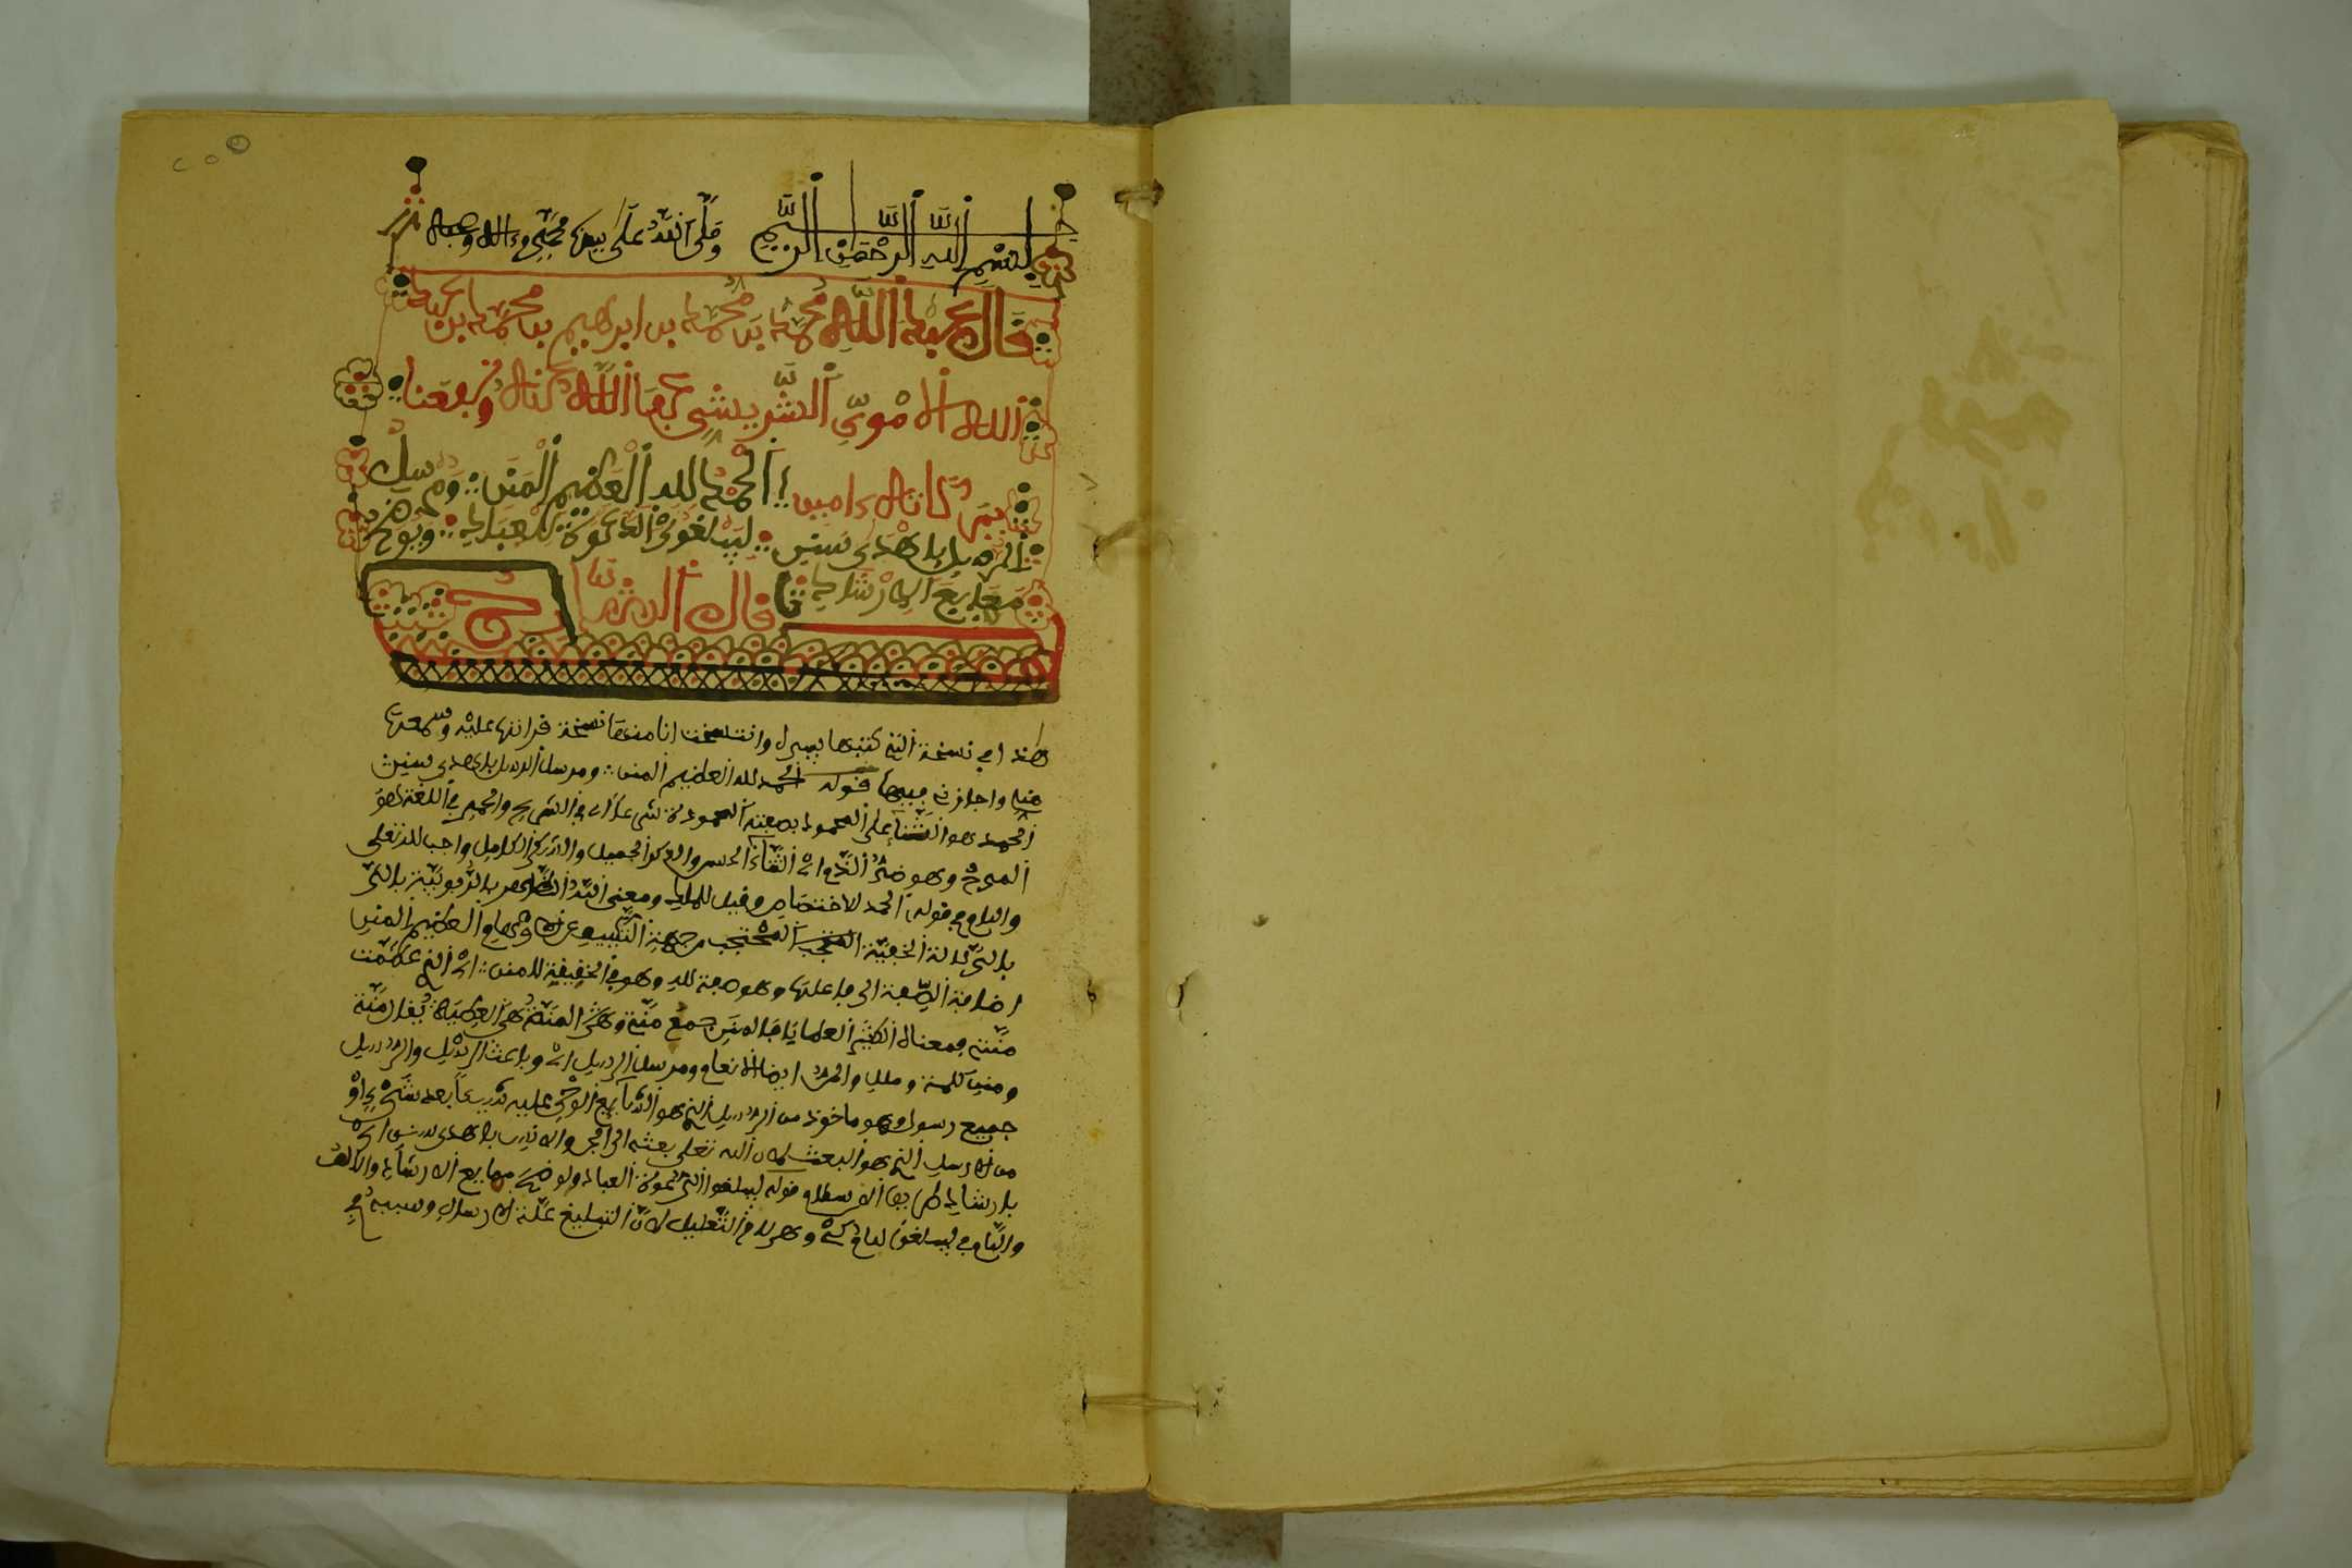 بسم الله الرحمن الرحيم وصلى الله على نبينا محمد وءاله وصحبه
قال عبد الله محمد بن محمد بن ابرهيم بن محمد بن عبد
الله الاموي الشريشي عفا الله عنه ونفعنا
ببركاته ءامين الحمد لله العظيم المنن ومرسل
الرسل باهدى سنن ليبلغوا الدعوة للعباد ويوضحوا
مهايع الارشاد قال الشارح
من نسخته التي كتبها بيده وانتسخت انا منها نسخة قراتها عليه وسمعتها
منه واجازني فيها قوله الحمد لله العظيم المنن ومرسل الرسل باهدى سنن
الحمد هو الثناء على المحمود بصفته المحمودة في اللغة هو
المدح وهو ضد الذم اي الثناء الحسن والذكر الجميل الكامل واجب لله تعلى
واللام في قوله الحمد للاختصاص وقيل للملك ومعنى الله الظاهر بالربوبية
بالدلالة الخفية المحتجب من جهة التكييف عن الاوهام العظيم المنن
اضافة الصفة الى فاعلها وهو صفة لله وهو في الحقيقة للمنن اي الذي عظمت
مننه فمعناه الكثير العطايا فالمنن جمع منة والمنة هي العطية يقال منة
ومنن ككلمة وملل والمن ايضا الانعام ومرسل الرسل اي وباعث الرسل والرسل
جميع رسول وهو ماخوذ من الرسل الذي هو تتابع الوحي عليه بعد شيء او
من الارسال الذي هو البعث لان الله تعلى بعثه الى الجن والانس باهدى سنن اي
بارشاد طريق الاسلام قوله ليبلغوا الدعوة للعباد ويوضحوا مهايع الارشاد
واللام في ليبلغوا لام كي وهي لام التعليل لان التبليغ علة الارسال وسببه